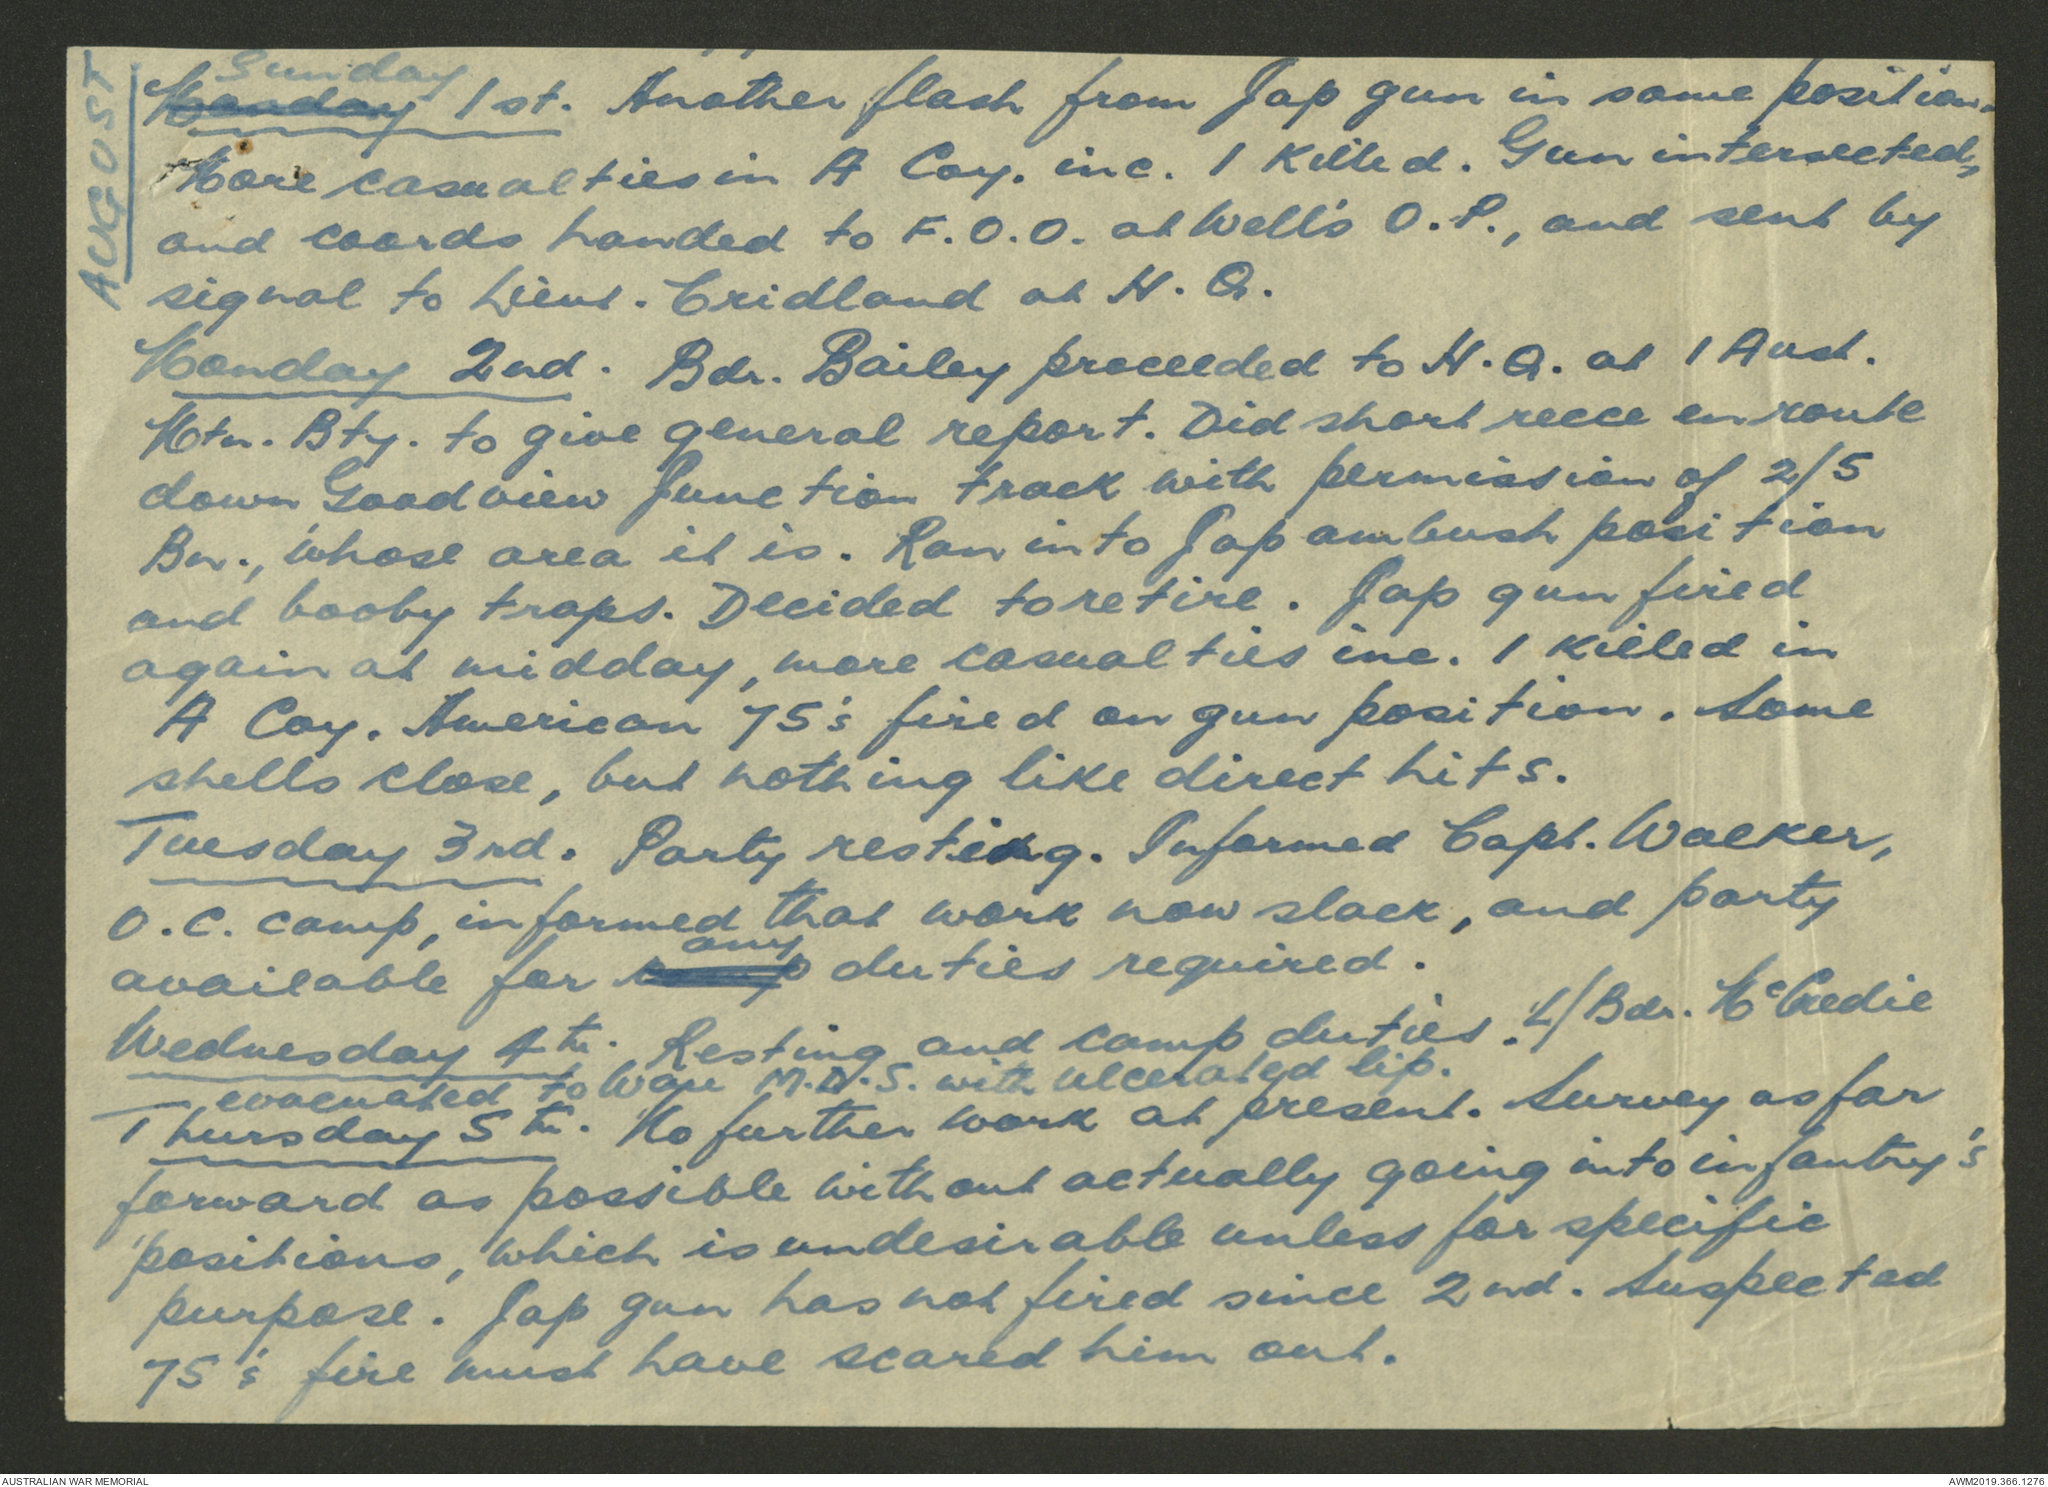 AUGUST
Sunday
Monday 1st. Another flash from Jap gun in same position.
More casualties in A Coy. inc. 1 killed. Gun intersected,
and coords handed to F.O.O. at Well's O.P., and sent by
signal to Lieut. Cridland at H.Q.
Monday 2nd. Bdr. Bailey proceeded to H.Q. at 1 Aust.
Mtn. Bty. to give general report. Did short recce en route
down Goodview Junction track with permission of 2/5
Bn., whose area it is. Ran into Jap ambush position
and booby traps. Decided to retire. Jap gun fired
again at midday, more casualties inc. 1 killed in
A Coy. American 75's fired on gun position. Some
shells close, but nothing like direct hits.
Tuesday 3rd. Party resting. Informed Capt. Walker,
O.C. camp, informed that work now slack, and party
any
available for duties required.
Wednesday 4th. Resting and camp duties. L/Bdr. McCredie
evacuated to Wau M.D.S. with ulcerated lip.
Thursday 5th. No further work at present. Survey as far
forward as possible without actually going into infantry's
positions, which is undesirable unless for specific
purpose. Jap gun has not fired since 2nd. Suspected
75's fire must have scared him out.
AUSTRALIAN WAR MEMORIAL
AWM2019.366.1276